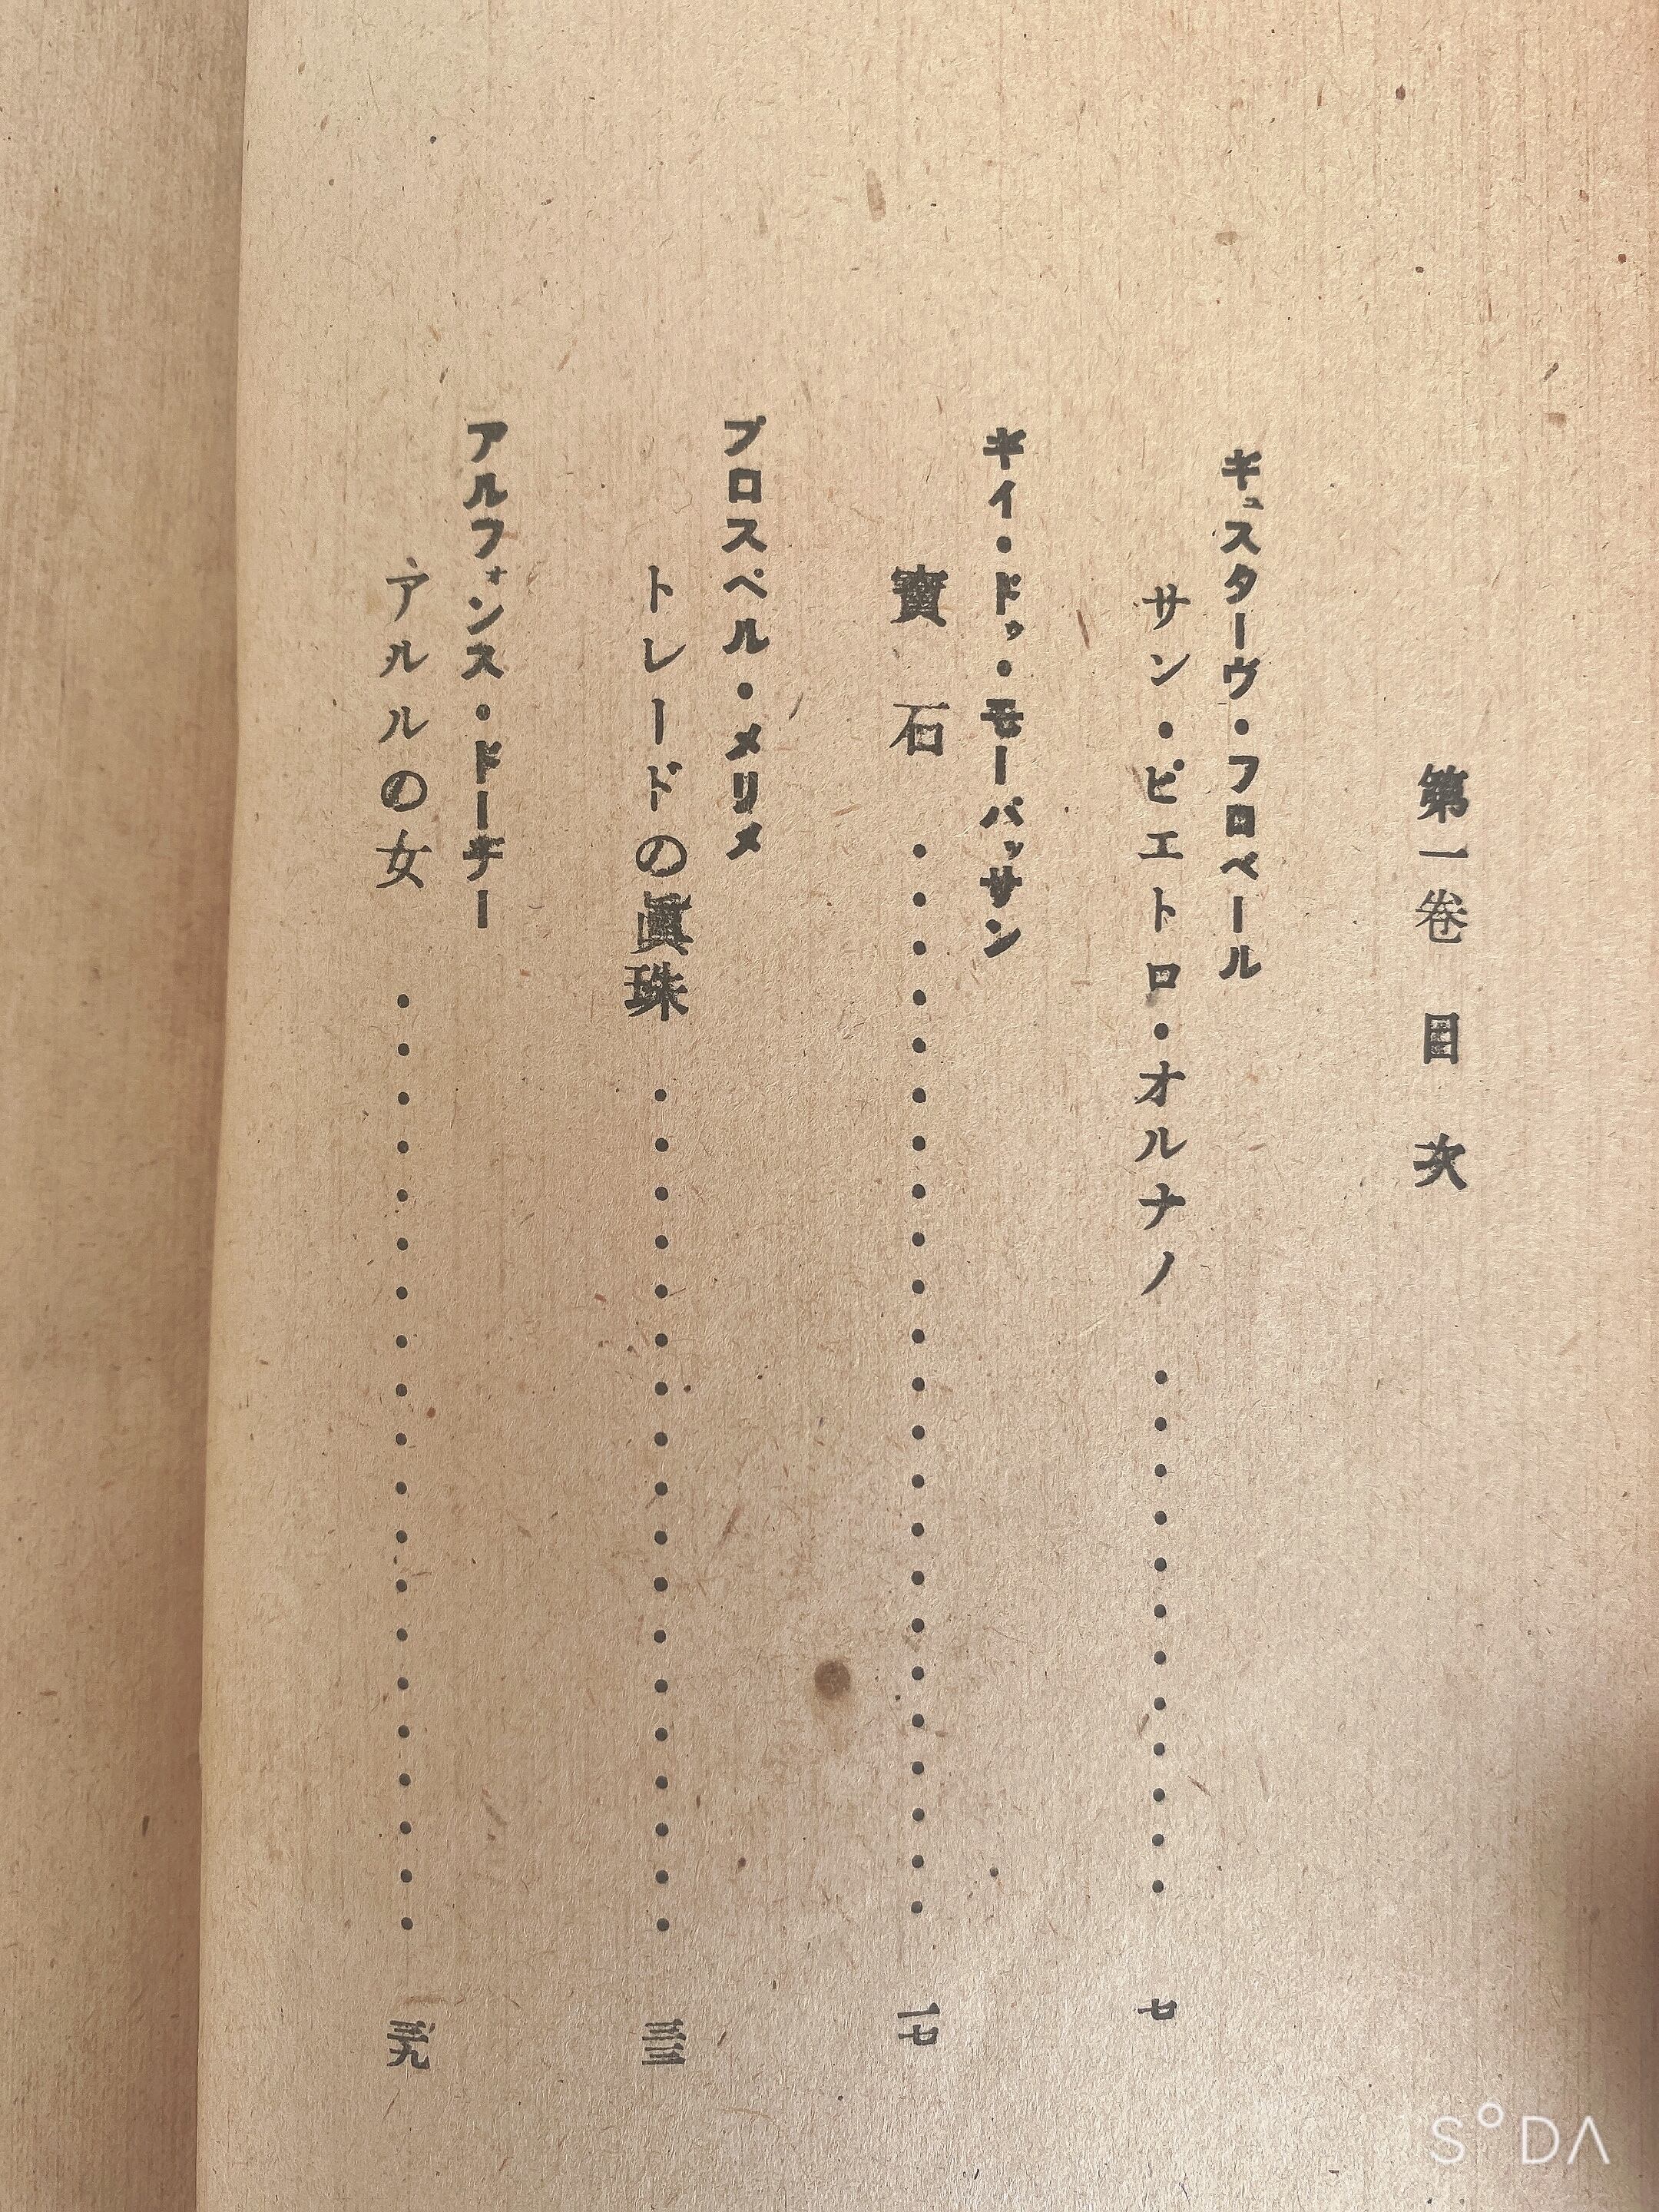 第一卷 目次
ギュスターヴ・フロベール
サン・ピエトロ・オルナノ……七
ギイ・ドゥ・モーパッサン
寶石……一七
プロスペル・メリメ
トレードの眞珠……三三
アルフォンス・ドーデー
アルルの女……三九
S°DA